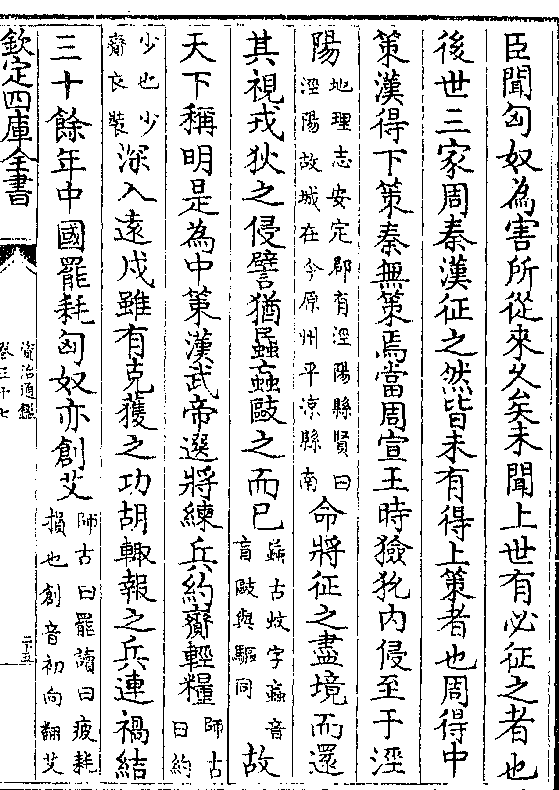 臣聞匈奴為害所從來久矣未聞上世有必征之者也
後世三家周秦漢征之然皆未有得上策者也周得中
策漢得下策秦無策焉當周宣王時獫狁内侵至于涇
陽地理志安定郡有涇陽縣賢曰涇陽故城在今原州平涼縣南命將征之盡境而還
其視戎狄之侵譬猶蟁蝱敺之而已蟁古蚊字蝱音盲敺與驅同故
天下稱明是為中策漢武帝選將練兵約齎輕糧師古曰約
少也少齎衣裝深入遠戍雖有克獲之功胡輒報之兵連禍結
三十餘年中國罷耗匈奴亦創艾師古曰罷讀曰疲耗損也創音初向翻艾
欽定四庫全書
資治通鑑
卷三十七
二十五